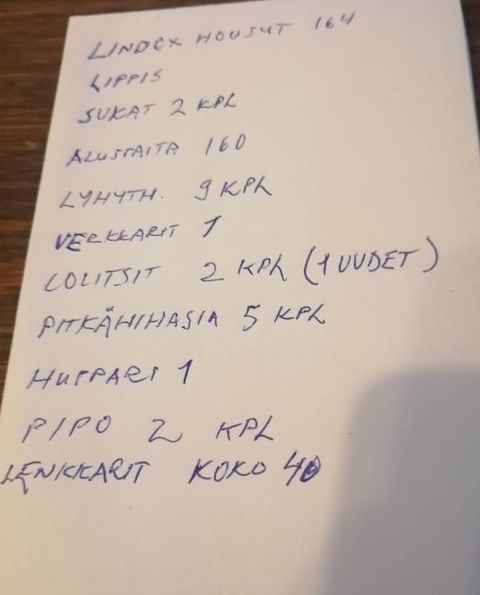 LINDEX HOUSUT 164
LIPPIS
SUKAT 2 KPL
ALUSPAITA 160
LYHYTH. 9 KPL
VERKKARIT 1
COLITSIT 2 KPL (1 UUDET)
PITKÄHIHASIA 5 KPL
HUPPARI 1
PIPO 2 KPL
LENKKARIT KOKO 40